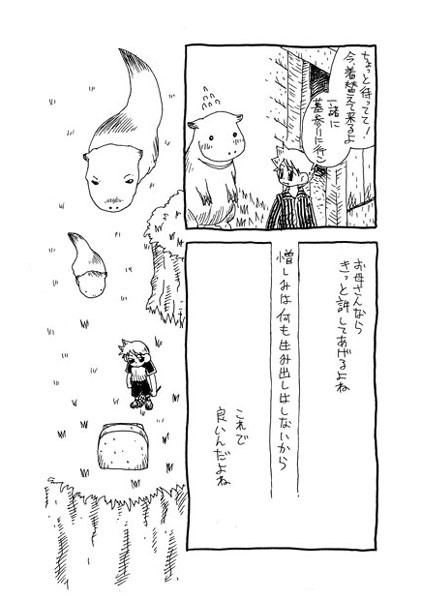 ちょっと待ってて！
今、着替えて来るよ
一緒に
墓参りに行こ
お母さんなら
きっと許してあげるよね
憎しみは何も生み出しはしないから
これで
良いんだよね